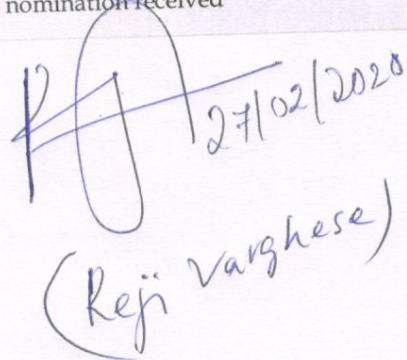 nomination received
27/02/2020
(Reji Varghese)